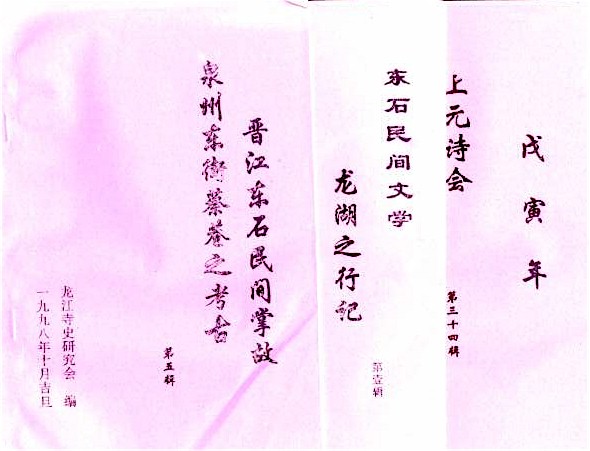 戊寅年
上元诗会
第三十四辑
东石民间文学
龙湖之行纪
第壹辑
晋江东石民间掌故
泉州东街蔡之考古
第五辑
龙江寺史研究会 编
一九九八年十月吉旦